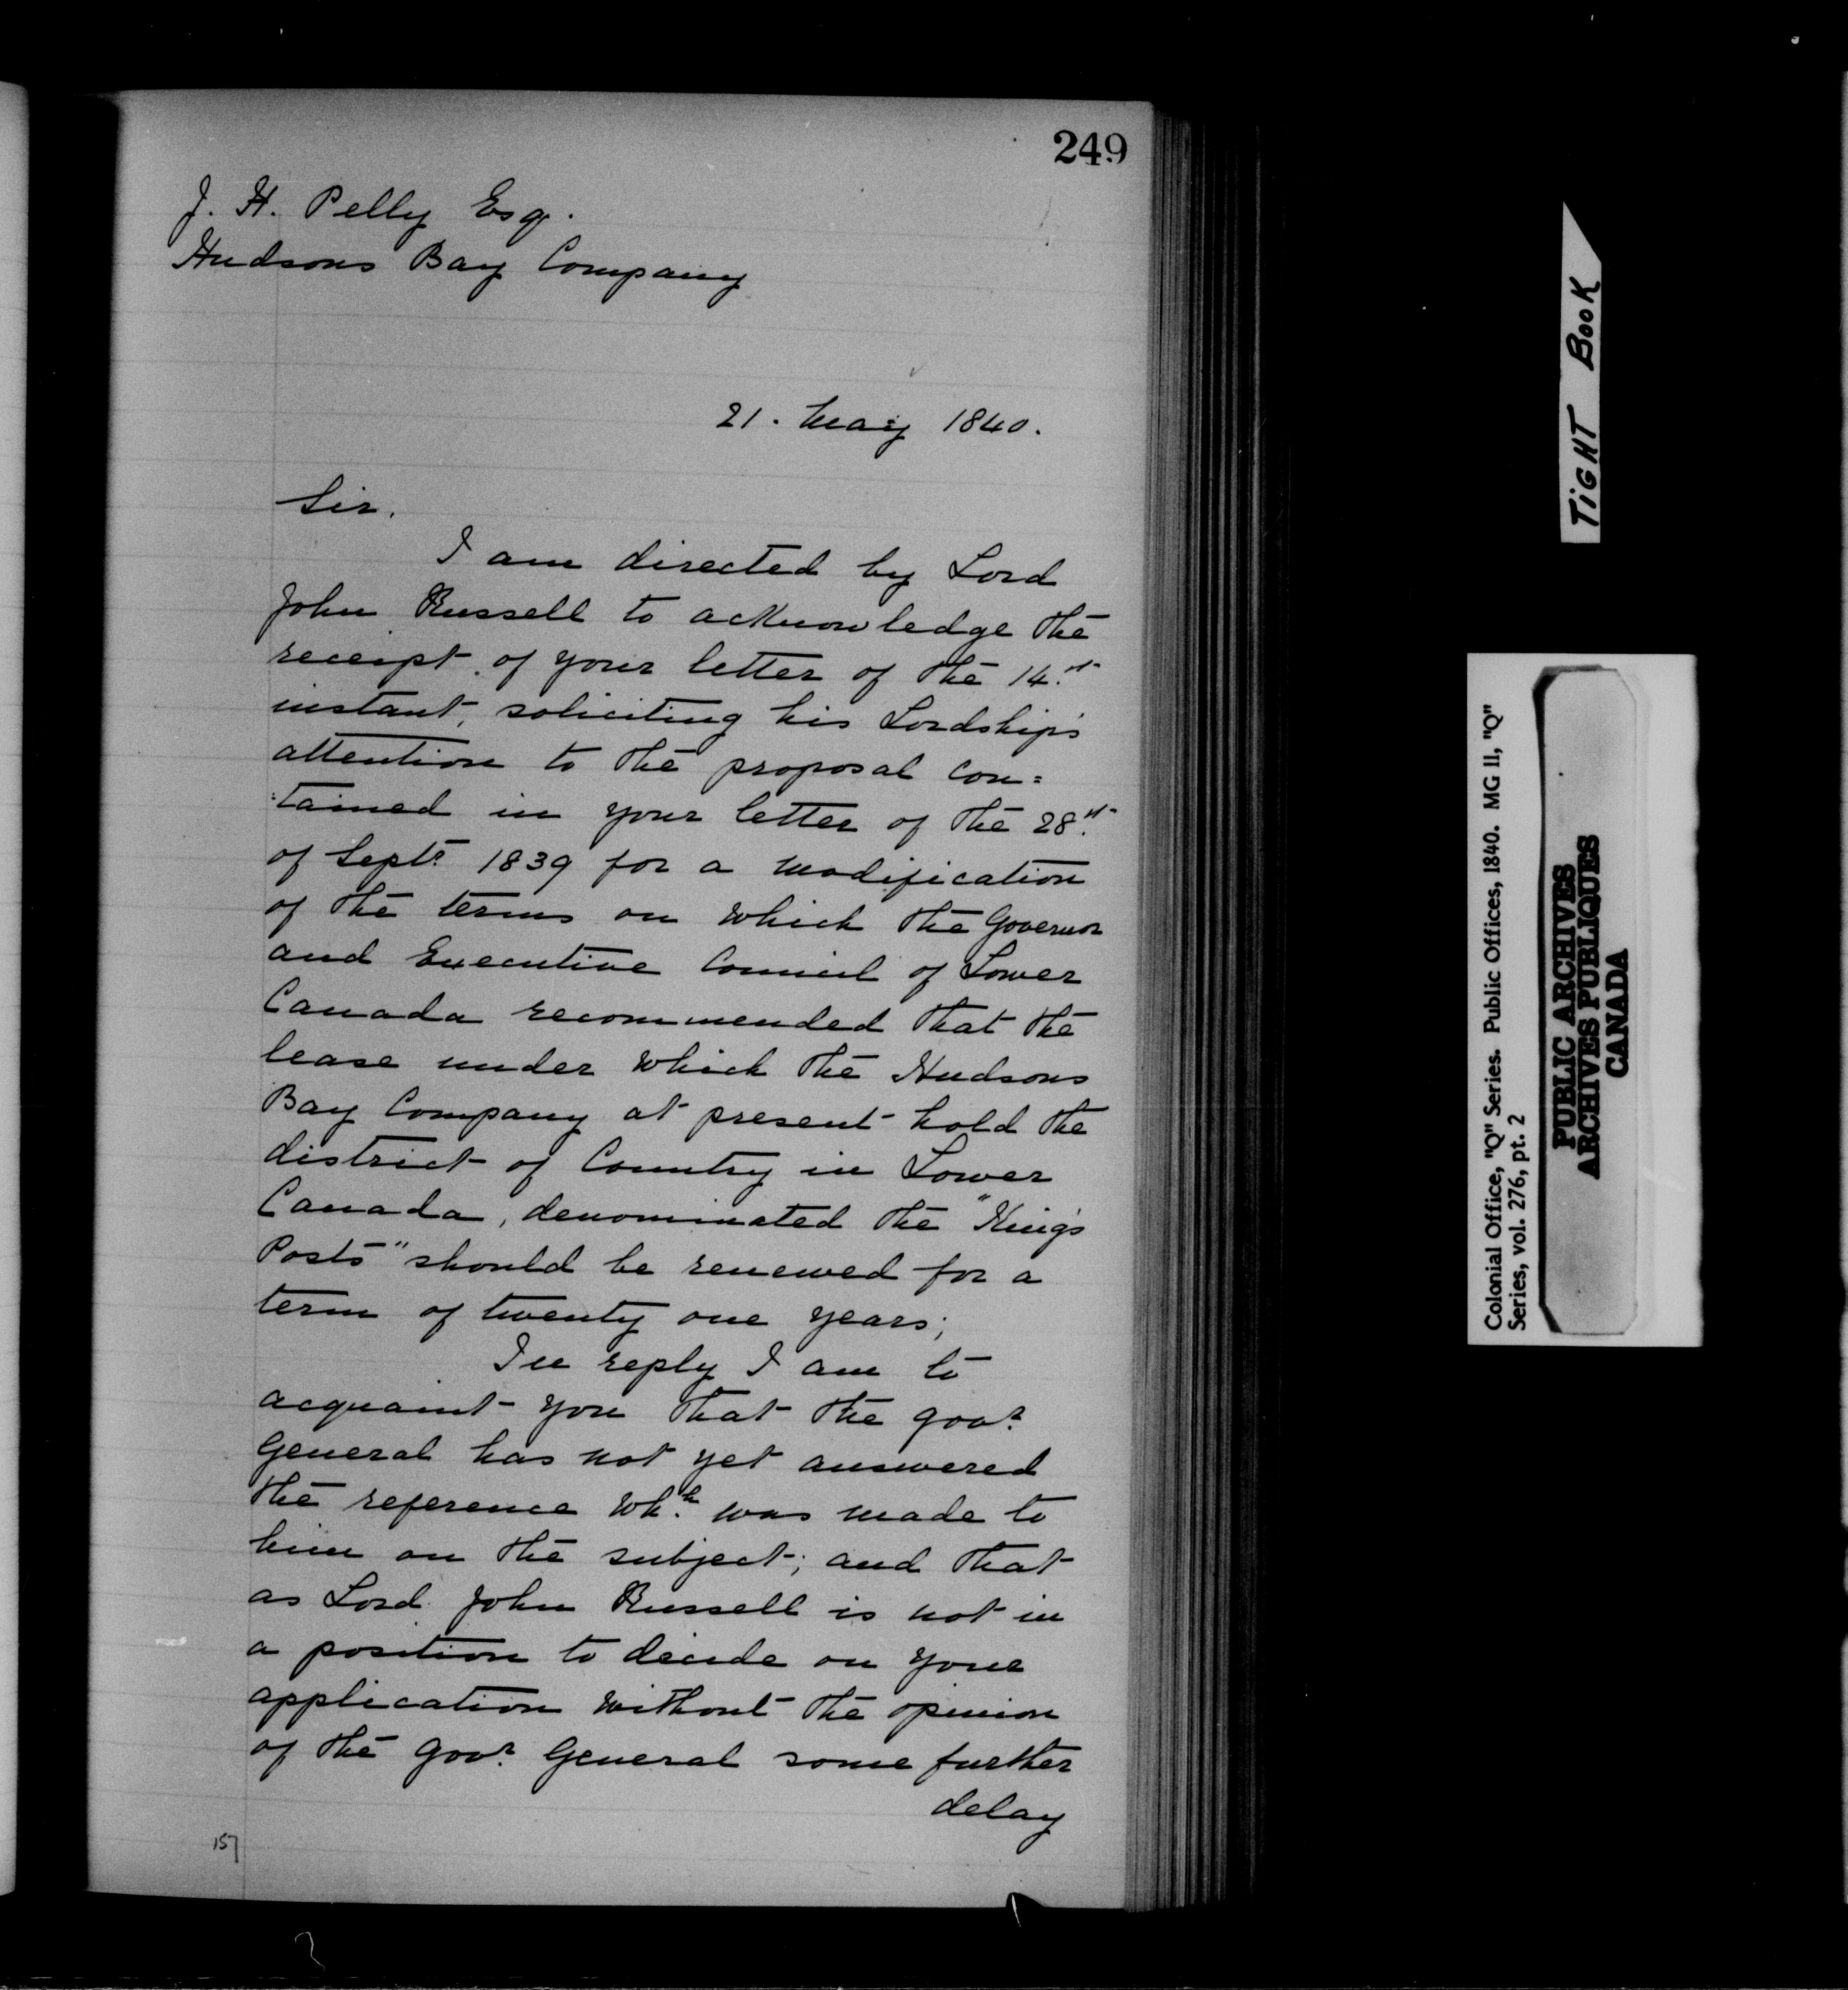 249
J. H. Pelly Esq.
Hudsons Bay Company
21. May 1840.
Sir.
I am directed by Lord
John Russell to acknowledge the
receipt of your letter of the 14.th
instant, soliciting his Lordship's
attention to the proposal con=
:tained in your letter of the 28.th
of Septr 1839 for a modification
of the terms on which the Governor
and Executive Council of Lower
Canada recommended that the
lease under which the Hudsons
Bay Company at present hold the
district of Country in Lower
Canada, denominated the "King's
Posts" should be renewed for a
term of twenty one years;
In reply I am to
acquaint you that the Govr
General has not yet answered
the reference wh.h was made to
him on the subject; and that
as Lord John Russell is not in
a position to decide on your
application without the opinion
of the Govr General some further
delay
157
TIGHT BOOK
Colonial Office, "Q" Series. Public Offices, 1840. MG 11, "Q"
Series, vol. 276, pt. 2
PUBLIC ARCHIVES
ARCHIVES PUBLIQUES
CANADA